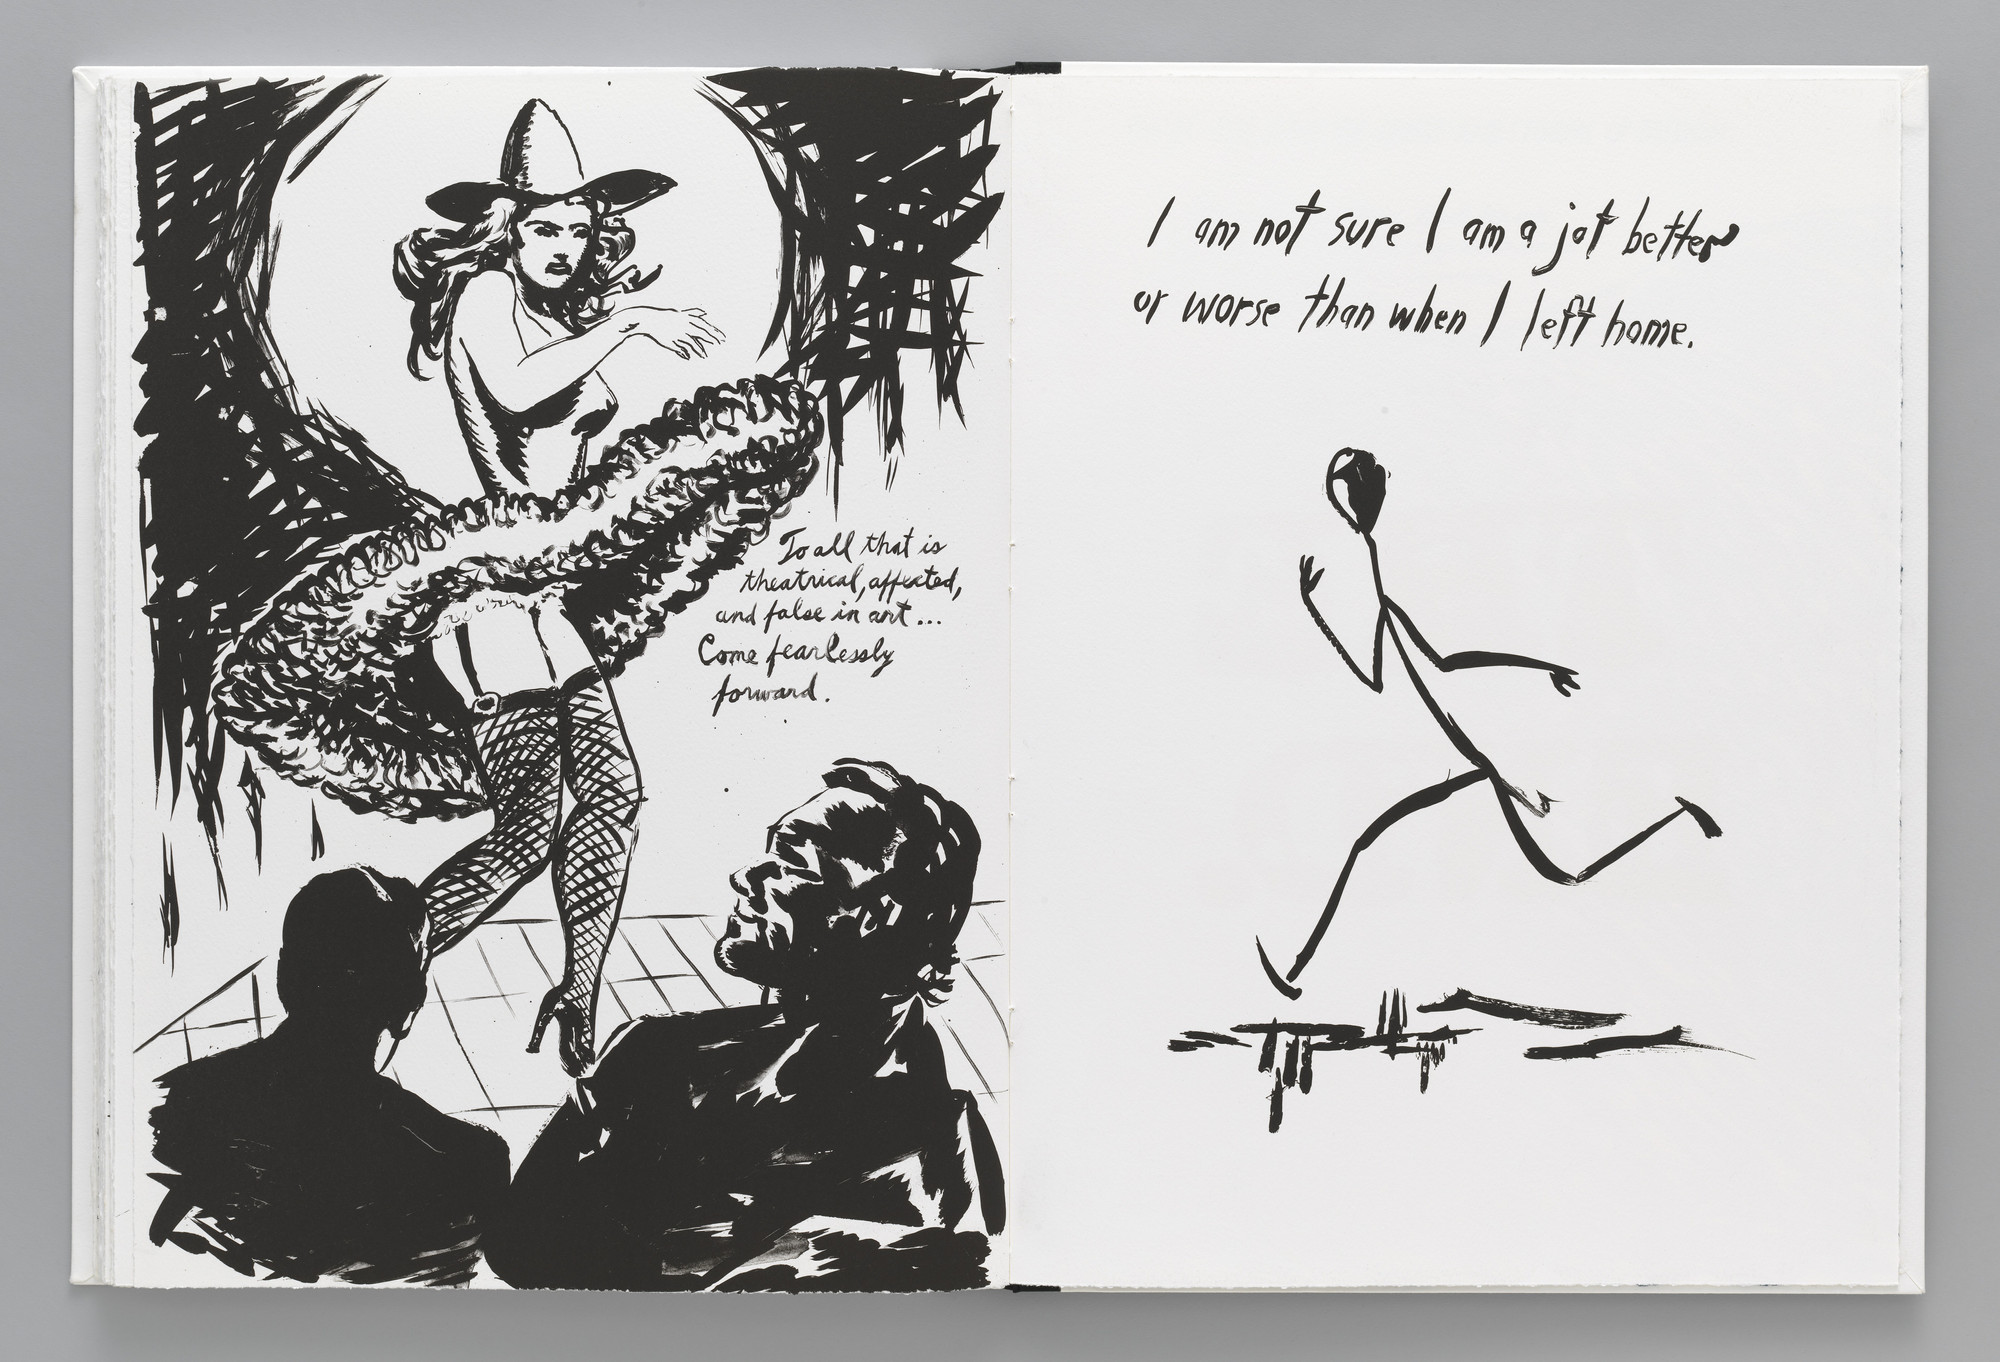 To all that is
theatrical, affected,
and false in art...
Come fearlessly
forward.
I am not sure I am a jot better
or worse than when I left home.